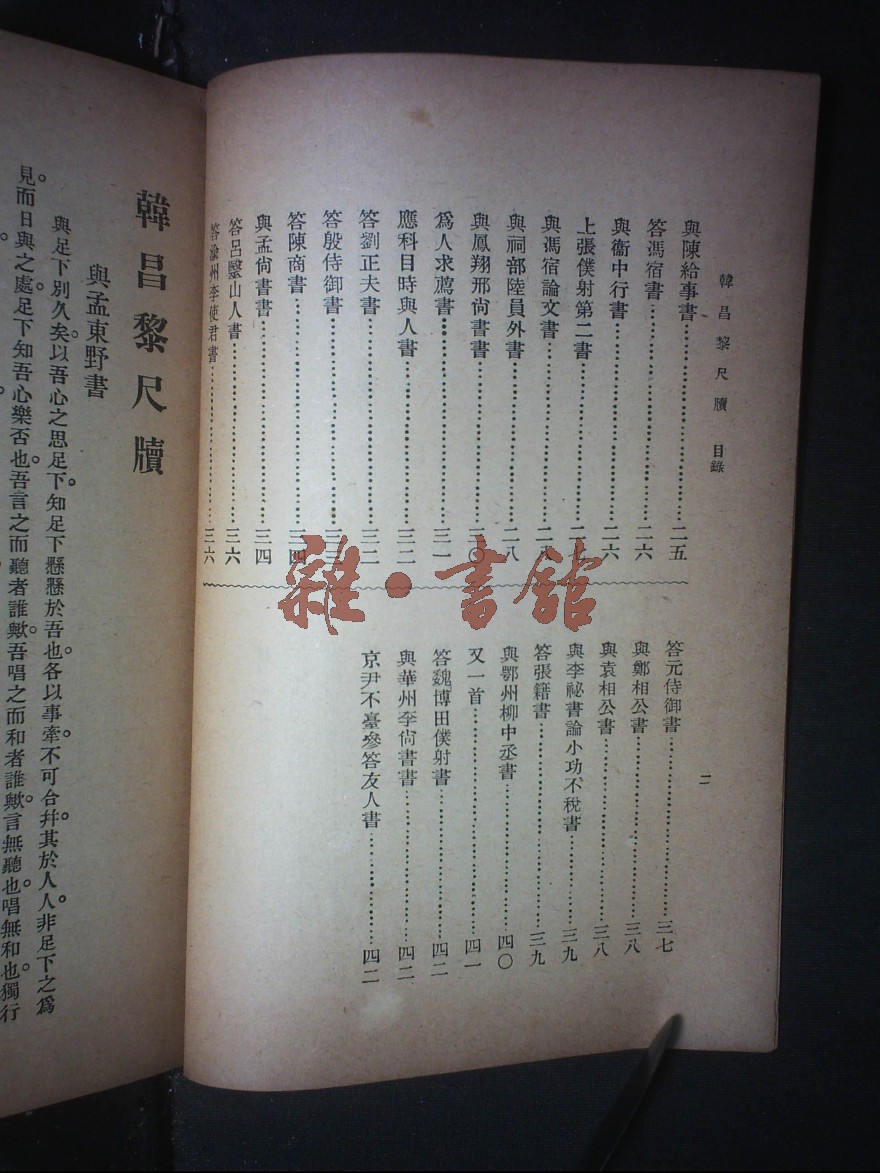 韓昌黎尺牘 目錄
二
與陳給事書…………二五
答馮宿書…………二六
與衞中行書…………二六
上張僕射第二書…………二七
與馮宿論文書…………二八
與祠部陸員外書…………二八
與鳳翔邢尙書書…………三〇
爲人求薦書…………三一
應科目時與人書…………三二
答劉正夫書…………三二
答殷侍御書…………三三
答陳商書…………三四
與孟尙書書…………三四
答呂毉山人書…………三六
答渝州李使君書…………三六
答元侍御書…………三七
與鄭相公書…………三八
與袁相公書…………三八
與李祕書論小功不稅書…………三九
答張籍書…………三九
與鄂州柳中丞書…………四〇
又一首…………四一
答魏博田僕射書…………四二
與華州李尙書書…………四二
京尹不臺參答友人書…………四二
雜·書館
韓昌黎尺牘
與孟東野書
與足下別久矣。以吾心之思足下。知足下懸懸於吾也。各以事牽。不可合幷。其於人人。非足下之爲
見。而日與之處。足下知吾心樂否也。吾言之而聽者誰歟。吾唱之而和者誰歟。言無聽也。唱無和也。獨行